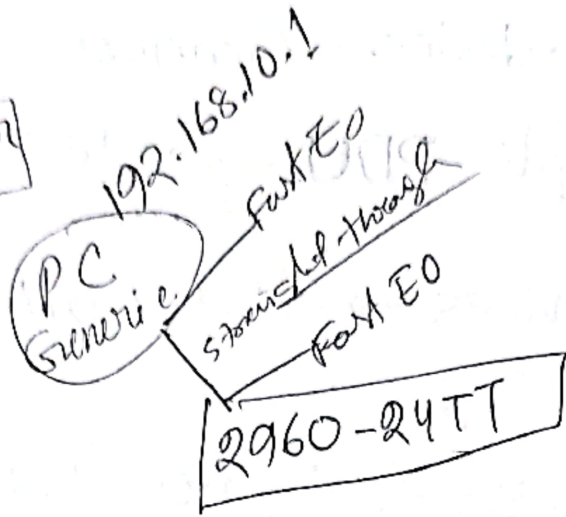 192.168.10.1
PC
Generic
Fast E0
straight-through
Fast E0
2960-24TT